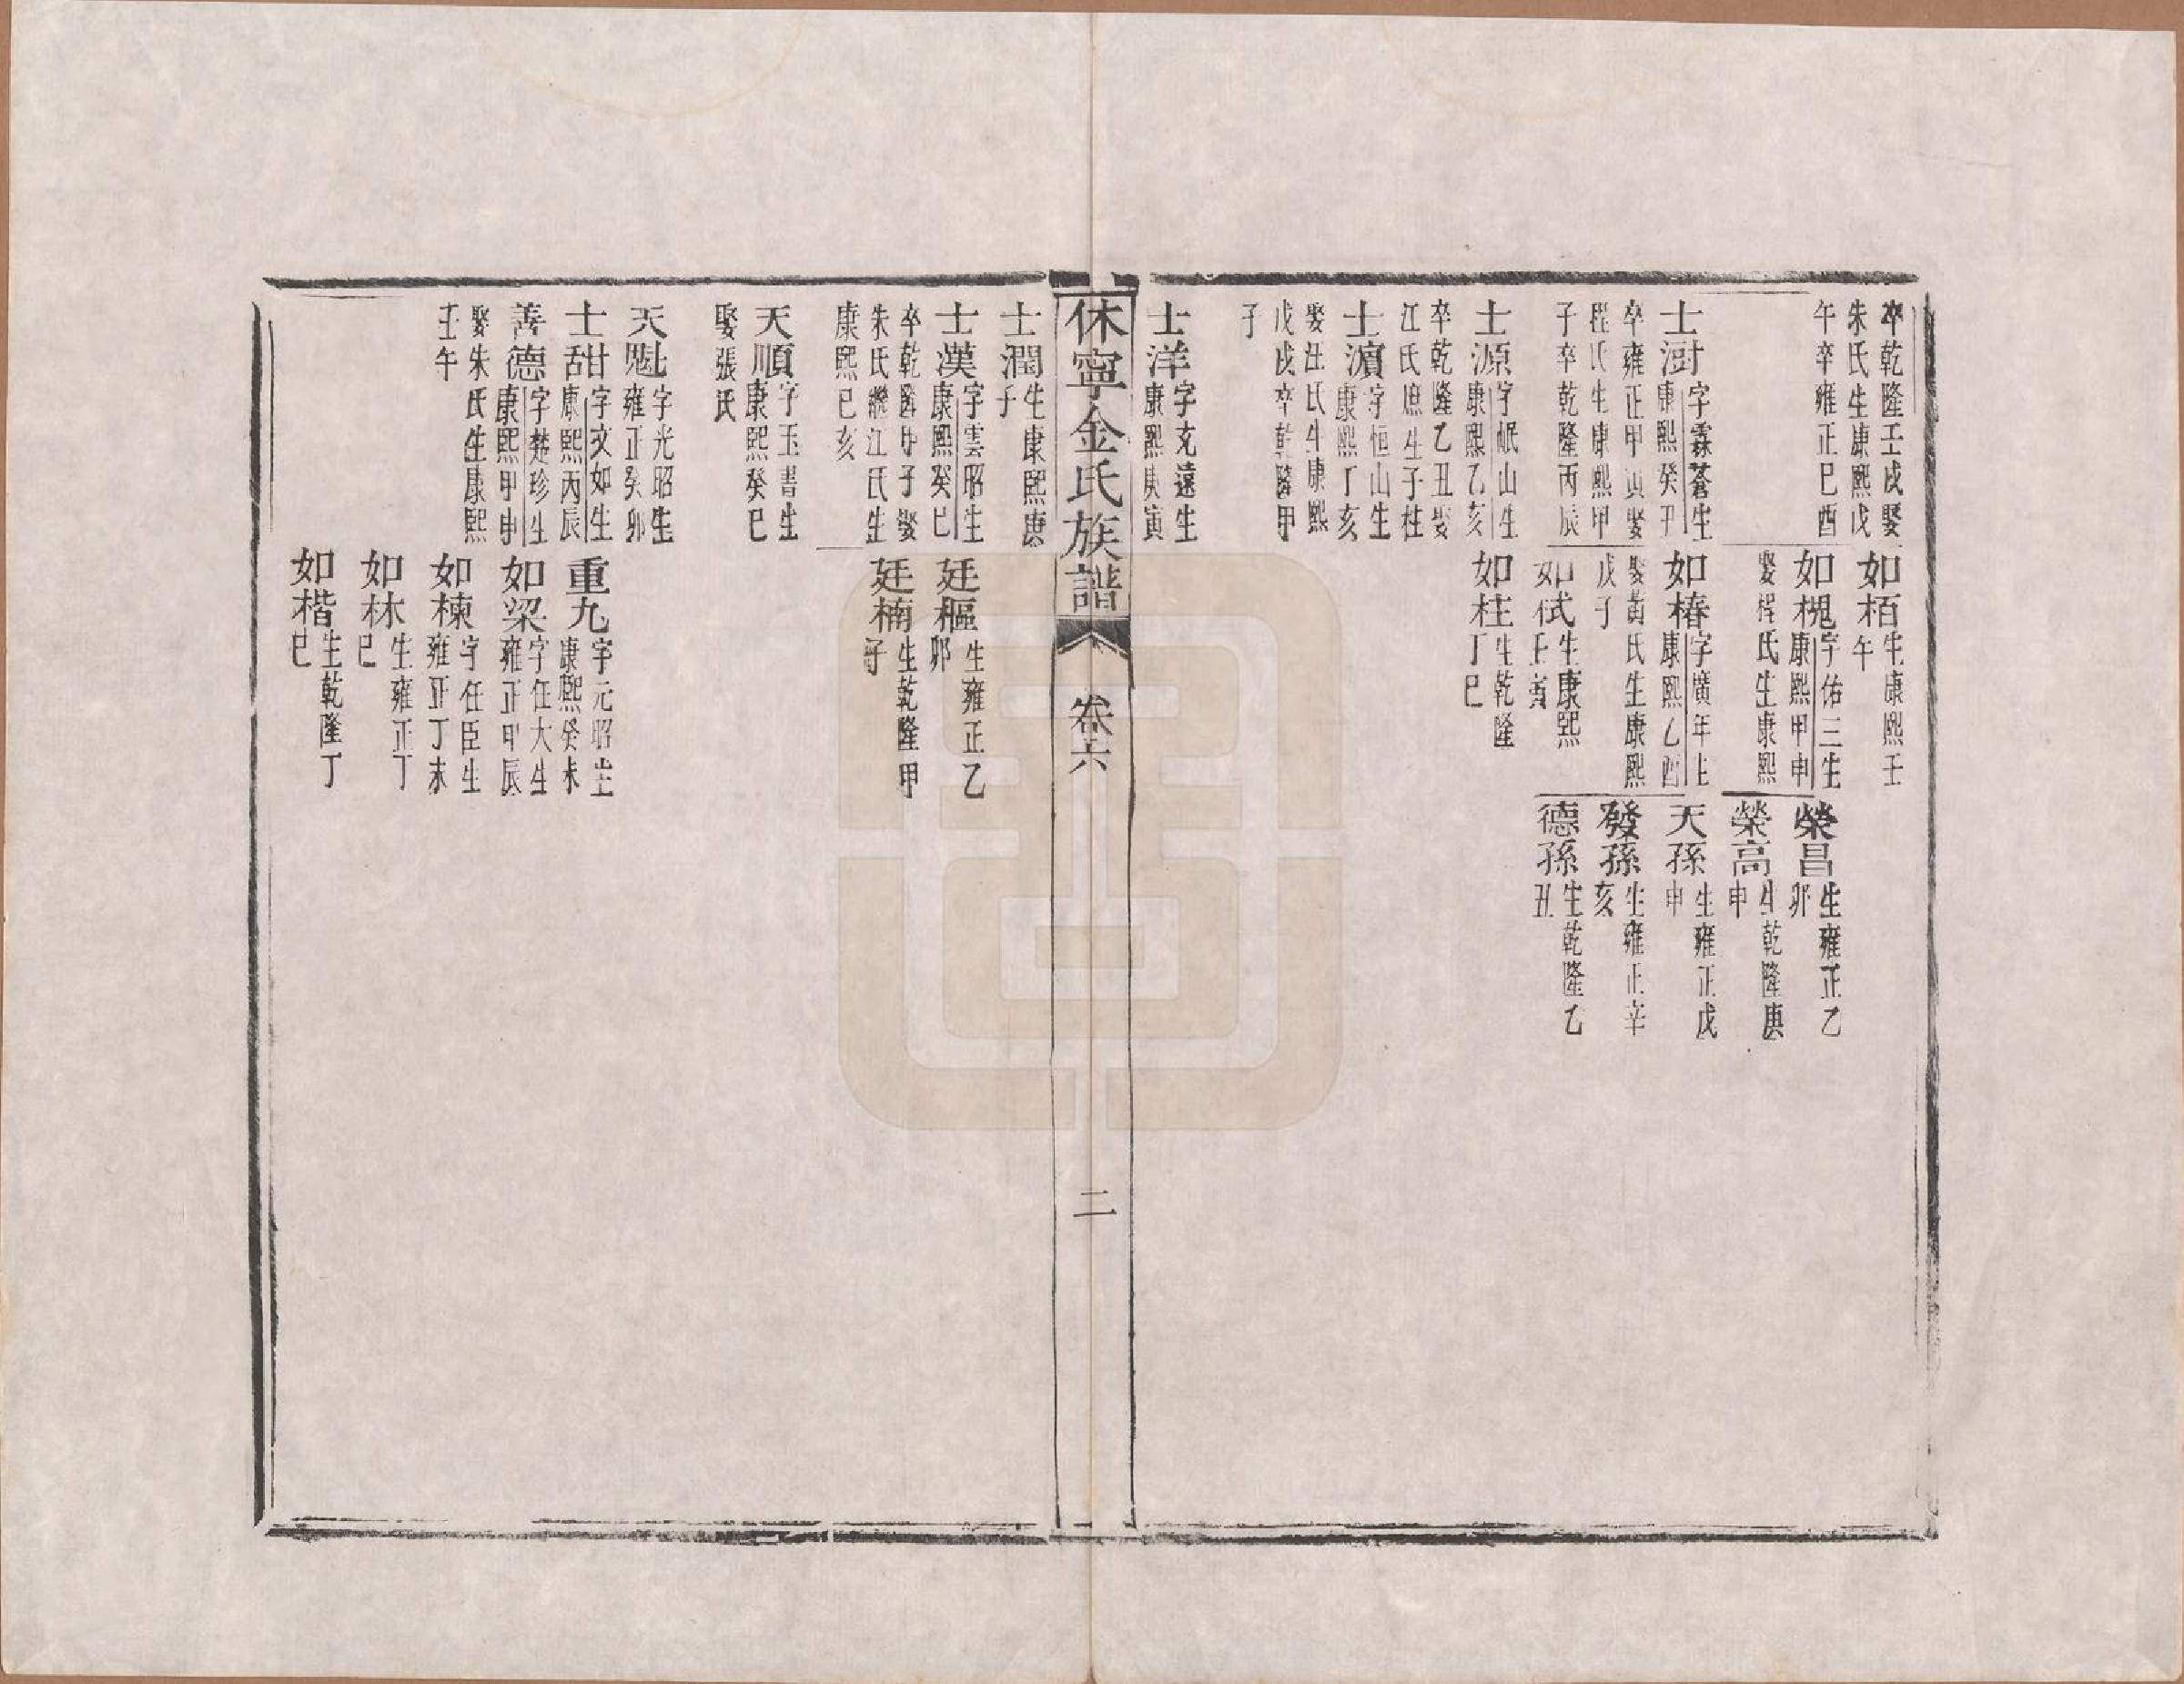 卒乾隆壬戌娶
朱氏生康熙戊
午卒雍正己酉
士澍字霖蒼生
康熙癸丑
卒雍正甲寅娶
程氏生康熙甲
子卒乾隆丙辰
士源字岷山生
康熙乙亥
卒乾隆乙丑娶
江氏庶生子柱
士濵字恒山生
康熙丁亥
娶汪氏生康熙
戊戌卒乾隆甲
子
士洋字克遠生
康熙庚寅
如栢生康熙壬
午
如槐字佑三生
康熙甲申
娶程氏生康熙
如椿字廣年生
康熙乙酉
娶黃氏生康熙
戊子
如栻生康熙
壬寅
如柱生乾隆
丁巳
榮昌生雍正乙
卯
榮高生乾隆庚
申
天孫生雍正戊
申
發孫生雍正辛
亥
德孫生乾隆乙
丑
休寧金氏族譜
卷六
二
士潤生康熙庚
子
士漢字雲昭生
康熙癸巳
卒乾隆甲子娶
朱氏繼江氏生
康熙己亥
天順字玉書生
康熙癸巳
娶張氏
天魁字光昭生
雍正癸卯
士甜字文如生
康熙丙辰
善德字楚珍生
康熙甲申
娶朱氏生康熙
壬午
廷樞生雍正乙
卯
廷楠生乾隆甲
子
重九字元昭生
康熙癸未
如梁字任大生
雍正甲辰
如棟字任臣生
雍正丁未
如林生雍正丁
巳
如楷生乾隆丁
巳